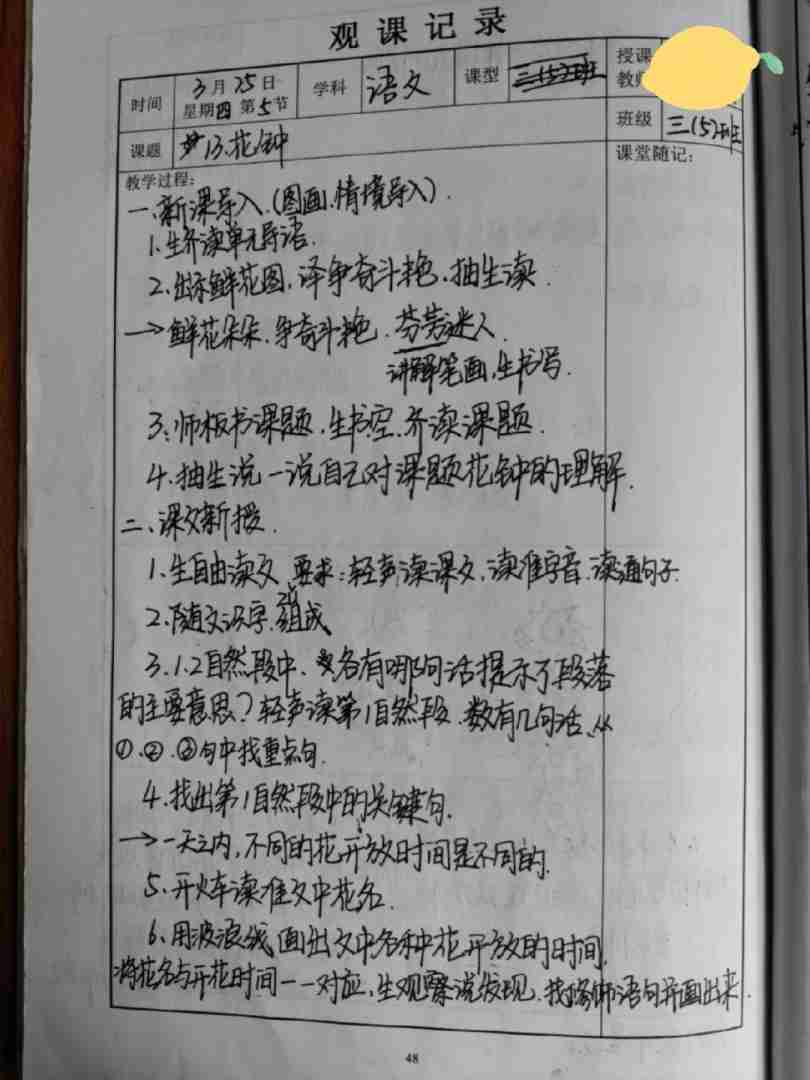 观课记录
时间 3月25日 星期四 第5节 学科 语文 课型 三(5)班 授课教师
班级 三(5)班
课题 13.花钟
教学过程: 课堂随记:
一、新课导入.(图画、情境导入).
1.生齐读单元导语.
2.出示鲜花图,译争奇斗艳.抽生读.
→鲜花朵朵、争奇斗艳.芬芳迷人.
讲解笔画,生书写.
3.师板书课题.生书空.齐读课题.
4.抽生说一说自己对课题花钟的理解.
二、课文新授.
1.生自由读文.要求:轻声读课文.读准字音.读通句子
2.随文识字.组成
3.1.2自然段中.各有哪句话提示了段落
的主要意思?轻声读第1自然段.数有几句话.从
①.②.③句中找重点句.
4.找出第1自然段中的关键句.
→一天之内,不同的花开放时间是不同的.
5.开火车读准文中花名.
6.用波浪线画出文中各种花开放的时间.
将花名与开花时间一一对应.生观察说发现.找修饰语句并画出来
48